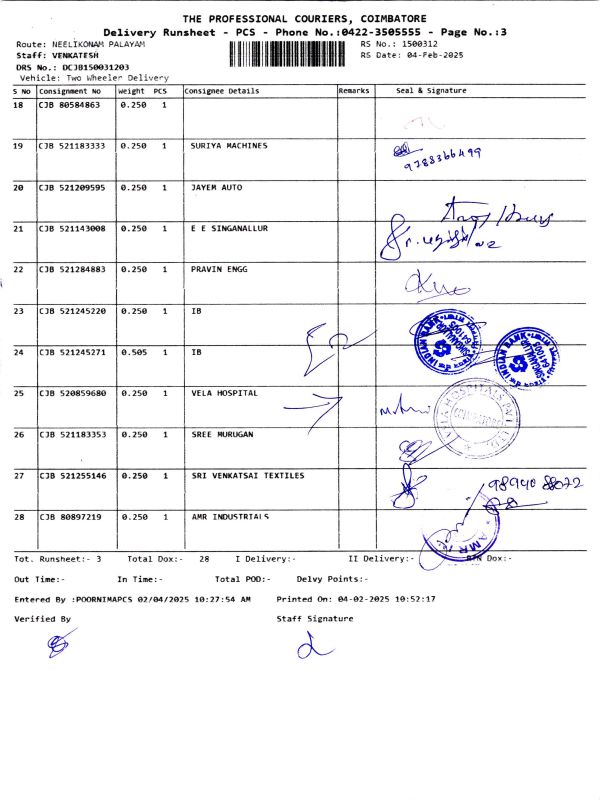 THE PROFESSIONAL COURIERS, COIMBATORE
Delivery Runsheet - PCS - Phone No.:0422-3505555 - Page No.:3
Route: NEELIKONAM PALAYAM RS No.: 1500312
Staff: VENKATESH RS Date: 04-Feb-2025
DRS No.: DCJB150031203
Vehicle: Two Wheeler Delivery
S No Consignment No Weight PCS Consignee Details Remarks Seal & Signature
18 CJB 80584863 0.250 1
19 CJB 521183333 0.250 1 SURIYA MACHINES
9788366499
20 CJB 521209595 0.250 1 JAYEM AUTO
21 CJB 521143008 0.250 1 E E SINGANALLUR
22 CJB 521284883 0.250 1 PRAVIN ENGG
23 CJB 521245220 0.250 1 IB
INDIAN BANK
SINGANALLUR
641005
24 CJB 521245271 0.505 1 IB
INDIAN BANK
SINGANALLUR
641005
25 CJB 520859680 0.250 1 VELA HOSPITAL
26 CJB 521183353 0.250 1 SREE MURUGAN
27 CJB 521255146 0.250 1 SRI VENKATSAI TEXTILES
98940 88072
28 CJB 80897219 0.250 1 AMR INDUSTRIALS
AMR
Tot. Runsheet:- 3 Total Dox:- 28 I Delivery:- II Delivery:- RTN Dox:-
Out Time:- In Time:- Total POD:- Delvy Points:-
Entered By :POORNIMAPCS 02/04/2025 10:27:54 AM Printed On: 04-02-2025 10:52:17
Verified By Staff Signature